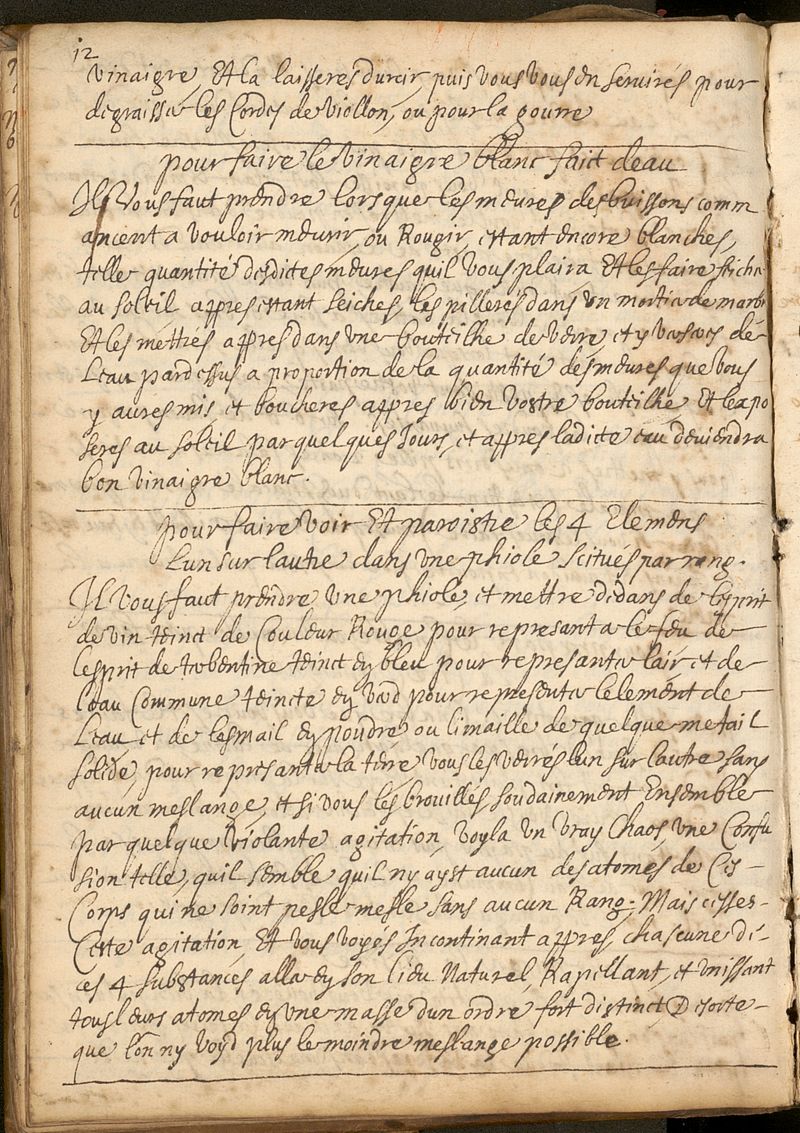 12
vinaigre Et la laisseres durcir, puis vous vous en servirés pour
degraisser les Cordes de viollon, ou pour la gourre
pour faire le vinaigre blanc faict deau
Il Vous faut prendre lors que les meures des buissons comm
ancent a vouloir meurir, ou Rougir, estant encore blanches,
telle quantité desdites meures quil Vous plaira Et les faire seicher
au soleil appres estant seiches, les pilleres dans un mortier de marbr
Et les mettres appres dans une bouteilhe de verre et y verseres de
Leau par dessus a proportion de la quantité des meures que vous
y aures mis et boucheres appres bien vostre bouteilhe Et lexpo
seres au soleil par quelques Jours, et appres ladicte eau deviendra
bon vinaigre blanc.
pour faire voir Et paroistre les 4 Elemens
Lun sur lautre dans une phiole scitués par rang.
Il vous faut prendre une phiole, et mettre dedans de lesprit
de vin teinct de Couleur Rouge pour represanter le feu de
lesprit de terbentine teinct ey bleu pour represanter lair et de
leau Commune teincte ey verd pour representer lelement de
Leau et de lesmail ey poudre ou limaille de quelque metail
solide, pour represanter la terre vous les verrés lun sur lautre sans
aucun meslange, et si vous les brouillés soudainement Ensemble
par quelque violante agitation, voyla un vray Chaos, une Confu
sion telle, quil semble quil ny ayst aucun des atomes de Ces
Corps qui ne soint pesle mesle sans aucun Rang. Mais cesses
Ceste agitation, Et vous voyés Incontinant appres, chascune de
ces 4 substances aller ey son lieu Naturel, Rapellant, et unissant
tous leurs atomes ey une masse dun ordre fort distinct De sorte
que lon ny voyd plus le moindre meslange possible.